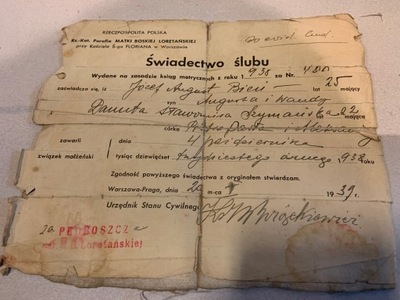 RZECZPOSPOLITA POLSKA
Rz.-Kat. Parafia MATKI BOSKIEJ LORETAŃSKIEJ
przy Kościele Ś-go FLORIANA w Warszawie
Świadectwo ślubu
Wydane na zasadzie ksiąg metrycznych z roku 1938 za Nr.
zaświadcza się, iż Józef August Bień lat 25 mający
syn Augusta i Wandy
Danuta Sławomira Szymańska 22 mająca
córka i
zawarli dnia 4 października
związek małżeński tysiąc dziewięćset trzydziestego ósmego 938 roku
Zgodność powyższego świadectwa z oryginałem stwierdzam.
Warszawa-Praga, dnia 20 m-ca V 1939.
Urzędnik Stanu Cywilnego
za PROBOSZCZA
Loretańskiej